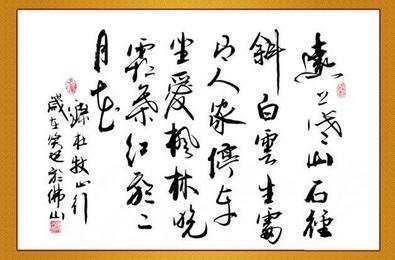 遠上寒山石徑
斜白雲生處
有人家停車
坐愛楓林晚
霜葉紅於二
月花
錄杜牧山行
歲在於佛山